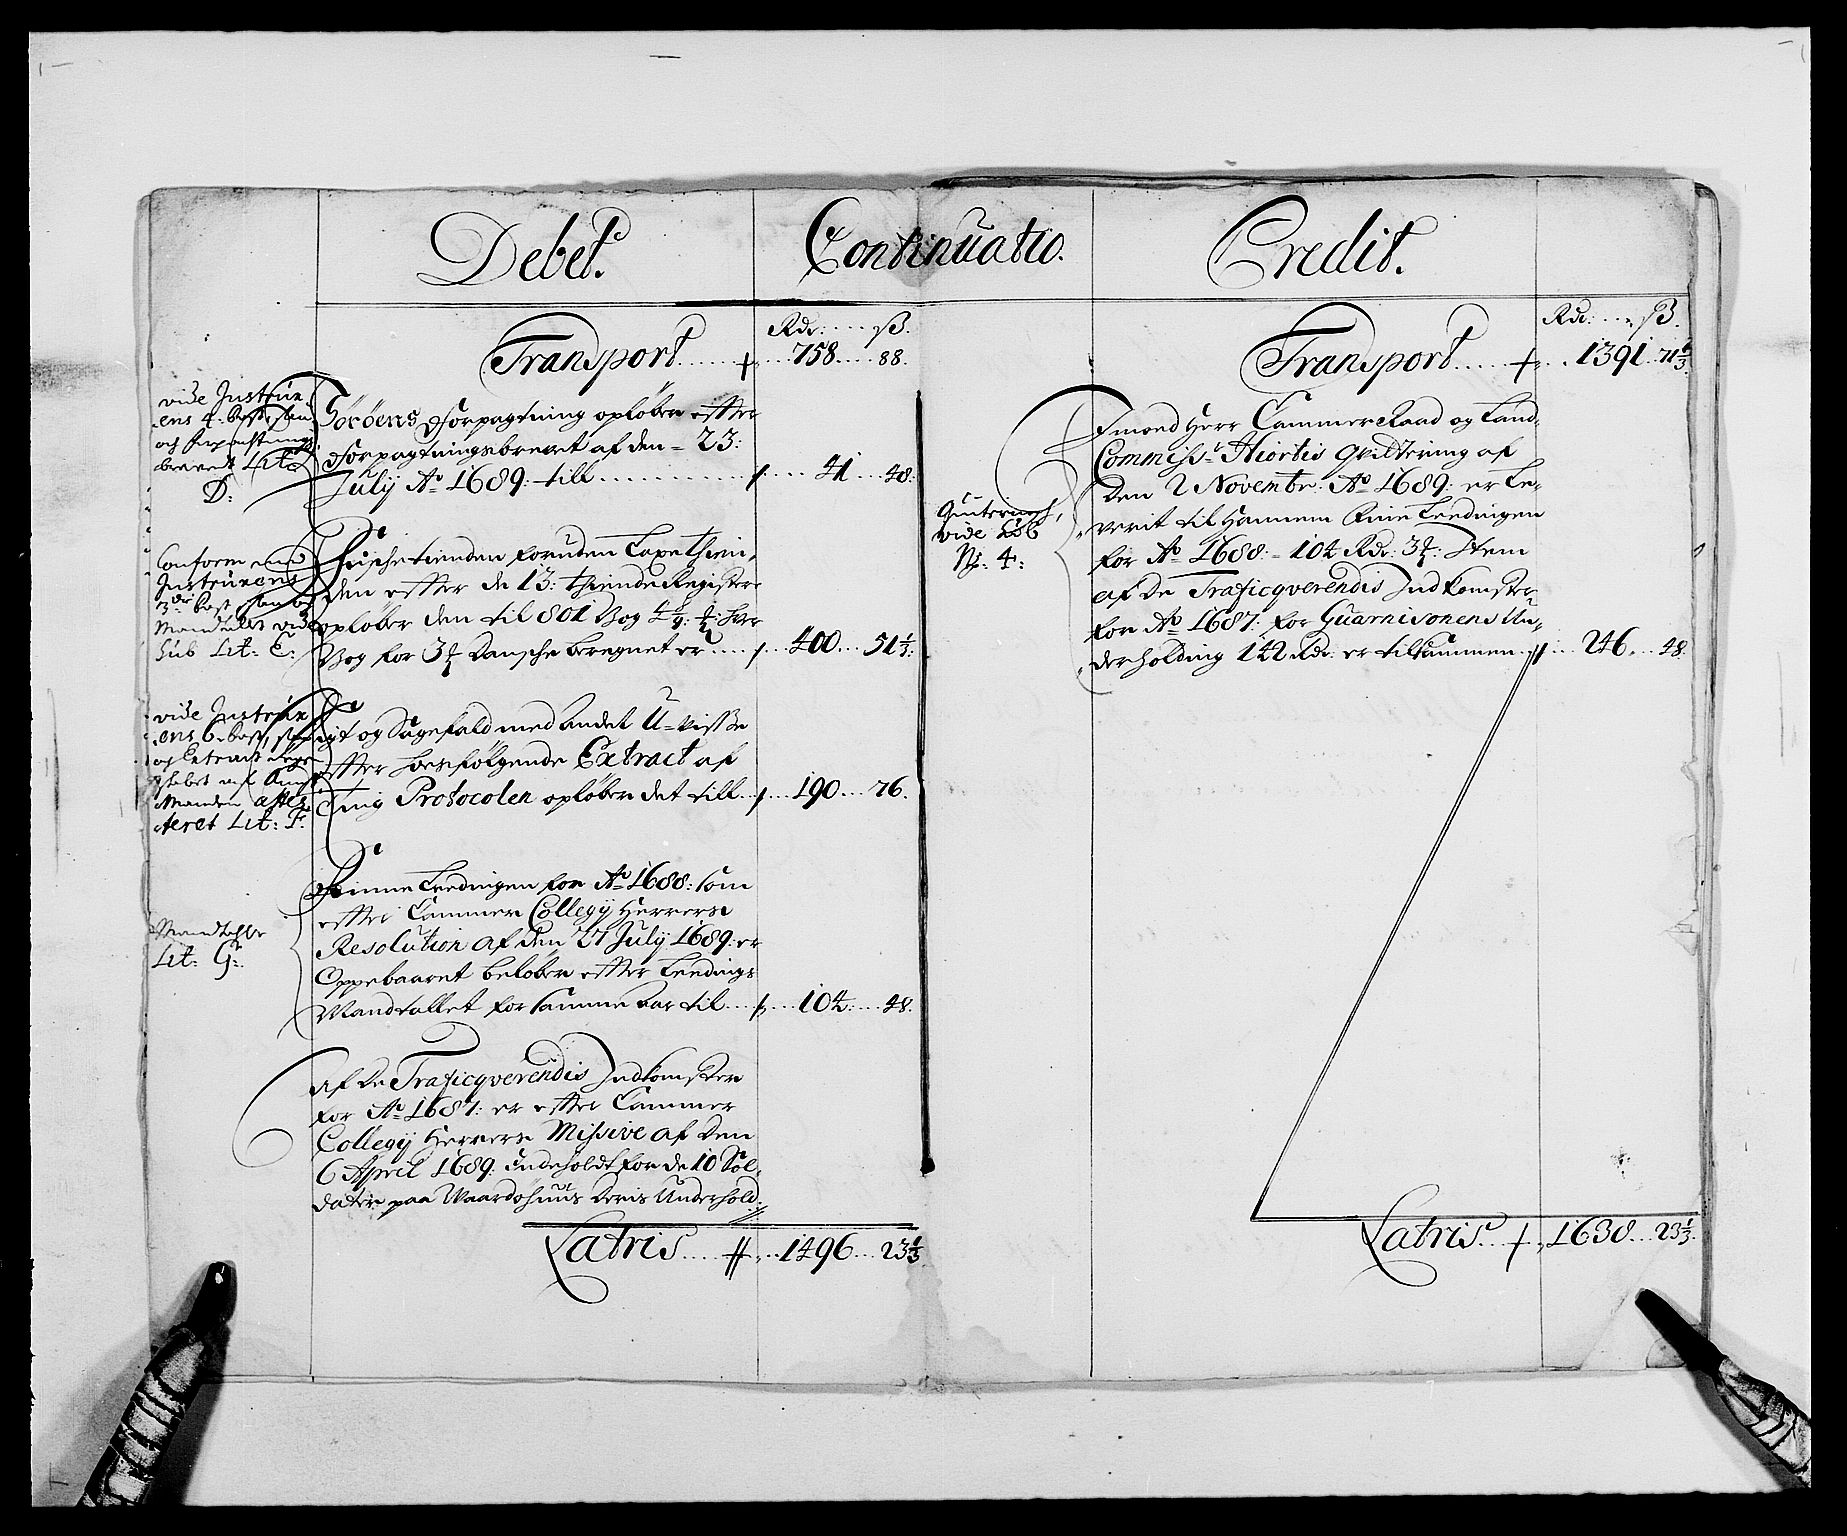 Debet.
Continuatio.
Credit.
Rdr: .... ß.
Transport ..... + ... 758 .... 88.
vide Instrux
ens 4. Post, san
och forpachtnings
brevet Lit:
D:
Söröens Forpagtning opløber efter
Forpagtningsbrevet af den = 23:
July Ao 1689: till ............ 41 ... 48:
Conform med
Instruxens
3die Post, san og
Mandtallet vide
sub Lit: E:
Fischetienden foruden
den efter de 13: thiende Register
opløber den til 801 Vog
Vog for 3½ Danske beregnet er .... 400 ... 51⅓:
vide Instrux
ens 6. Post, san
og Extract
af Amt
Manden attes
teret Lit: F:
Sigt og Sagefald med andet U-visse
efter hosfølgende Extract af
Ting Protocolen opløber det till ... 190 ... 76.
Mandtall
Lit: G:
Finne Leedingen for Ao 1688: som
efter Cammer Collegij Herrers
Resolution af den 27 July 1689: er
Oppebaaret beløber efter Leedings
Mandtallet for samme Aar til ... 104 .... 48.
Af De Traficqverendis Indkomster
for Ao 1687: er efter Cammer
Collegij Herrers Missive af den
6 April 1689. Indeholdt for de 10 Sol-
dater paa Waardøhuus deris Underhold.
Latris .... ... 1496 ... 23⅓.
Rdr: .... ß.
Transport ..... + ... 1391 .. 71⅓.
Quitering,
vide
No: 4:
Imod Herr CammerRaad og Land
Commiss: Hiortis Qvittering af
Den 2 Novembr: Ao 1689: er Le-
verit til Hannem Finne Leedingen
for Ao 1688: = 104 Rdr: 3 ⸺: Item
af De Traficqverendis Indkomster
for Ao 1687: for Guarnisonens Un-
derholding 142 Rdr: er tilsammen ... 246 ... 48.
Latris .. + .. 1638 ... 23⅓.